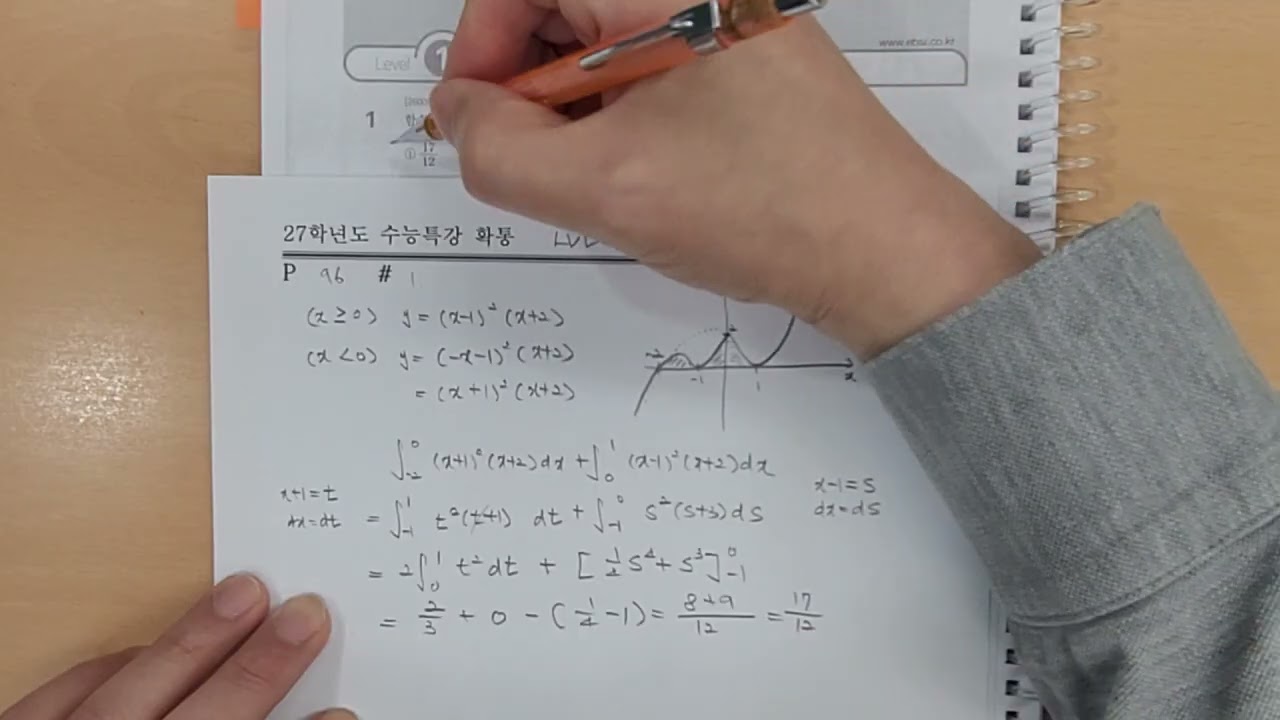 www.ebsi.co.kr
Level 1
1
① 17/12
27학년도 수능특강 확통
P 96 # 1
(x ≥ 0) y = (x-1)² (x+2)
(x < 0) y = (-x-1)² (x+2)
= (x+1)² (x+2)
-2 -1 2 1 x
∫₋₂⁰ (x+1)² (x+2) dx + ∫₀¹ (x-1)² (x+2) dx
x+1 = t
dx = dt
= ∫₋₁¹ t² (t+1) dt + ∫₋₁⁰ s² (s+3) ds
x-1 = s
dx = ds
= 2∫₀¹ t² dt + [1/4 s⁴ + s³]₋₁⁰
= 2/3 + 0 - (1/4 - 1) = 8+9/12 = 17/12